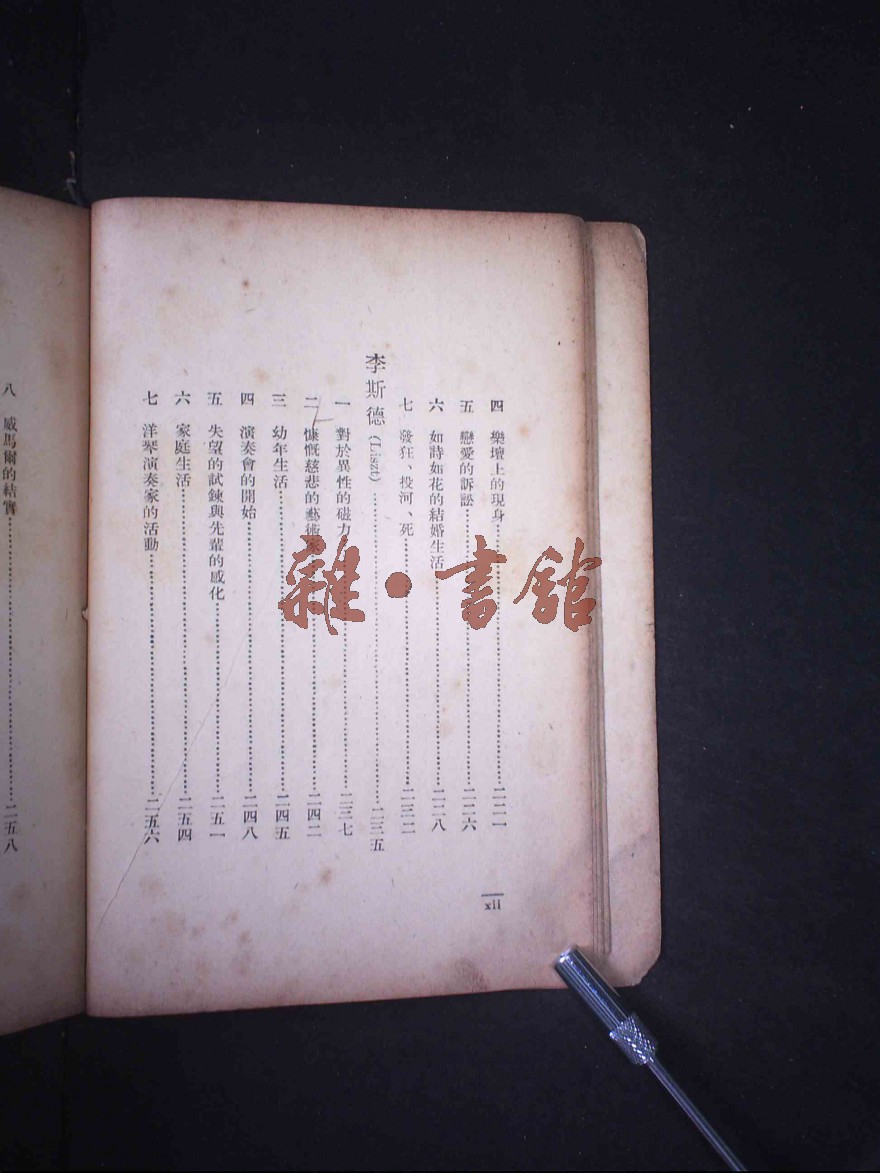 四　樂壇上的現身……二二一
五　戀愛的訴訟……二二六
六　如詩如花的結婚生活……二二八
七　發狂、投河、死……二三二
李斯德 (Liszt)……二三五
一　對於異性的磁力……二三七
二　慷慨慈悲的藝術家……二四二
三　幼年生活……二四五
四　演奏會的開始……二四八
五　失望的試鍊與先輩的感化……二五一
六　家庭生活……二五四
七　洋琴演奏家的活動……二五六
xii
八　威馬爾的結實……二五八
雜·書館